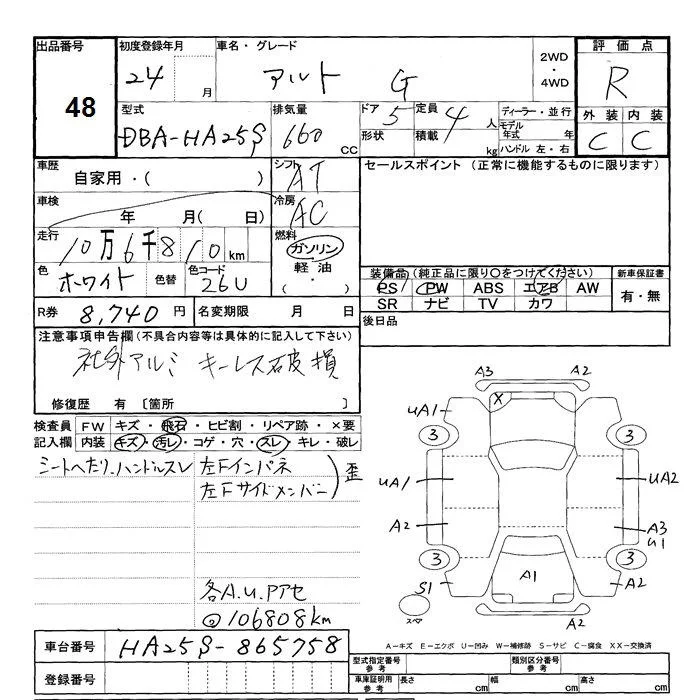 出品番号 初度登録年月 車名・グレード 2WD ・ 4WD 評価点
48 24 月 アルト G R
型式 排気量 ドア 5 定員 4 人 ディーラー・並行 外装 内装
DBA-HA25S 660 CC 形状 積載 kg モデル年式 年 ハンドル 左・右 C C
車歴 シフト AT セールスポイント (正常に機能するものに限ります)
自家用・( )
車検 冷房 AC
年 月( 日)
走行 燃料
10万6千810km ガソリン
色 色替 色コード 軽油 装備品(純正品に限り○をつけてください) 新車保証書
ホワイト 26U ・( ) PS PW ABS エアB AW 有・無
R券 8,740円 名変期限 月 日 SR ナビ TV カワ
注意事項申告欄(不具合内容等は具体的に記入して下さい) 後日品
社外アルミ キーレス破損
修復歴 有〔箇所 〕
検査員 FW キズ・飛石・ヒビ割・リペア跡・×要
記入欄 内装 キズ・汚レ・コゲ・穴・スレ・キレ・破レ
シートヘたり、ハンドルスレ 左Fインパネ
左Fサイドメンバー 歪
各A.U.Pアセ
@106808km
A3 A2
uA1 X
3 3
uA1 uA2
A2 A3
u1
3 3
S1 A1 A2
スペア A2
A-キズ E-エクボ U-凹み W-補修跡 S-サビ C-腐食 XX-交換済
車台番号 HA25S-865758
登録番号
型式指定番号 参考 類別区分番号 参考
車庫証明用 参考 長さ cm 幅 cm 高さ cm